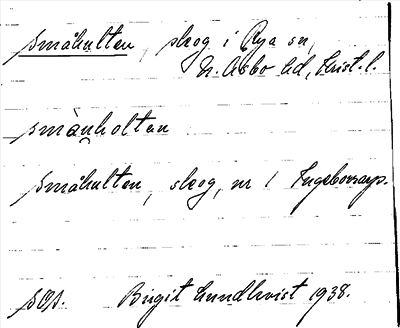 Småhulten, skog i Rya sn,
N. Åsbo hd, Krist. l.
smånholten
Småhulten, skog, nr 1 Ingeborrarp.
sOp. Birgit Lundkvist 1938.